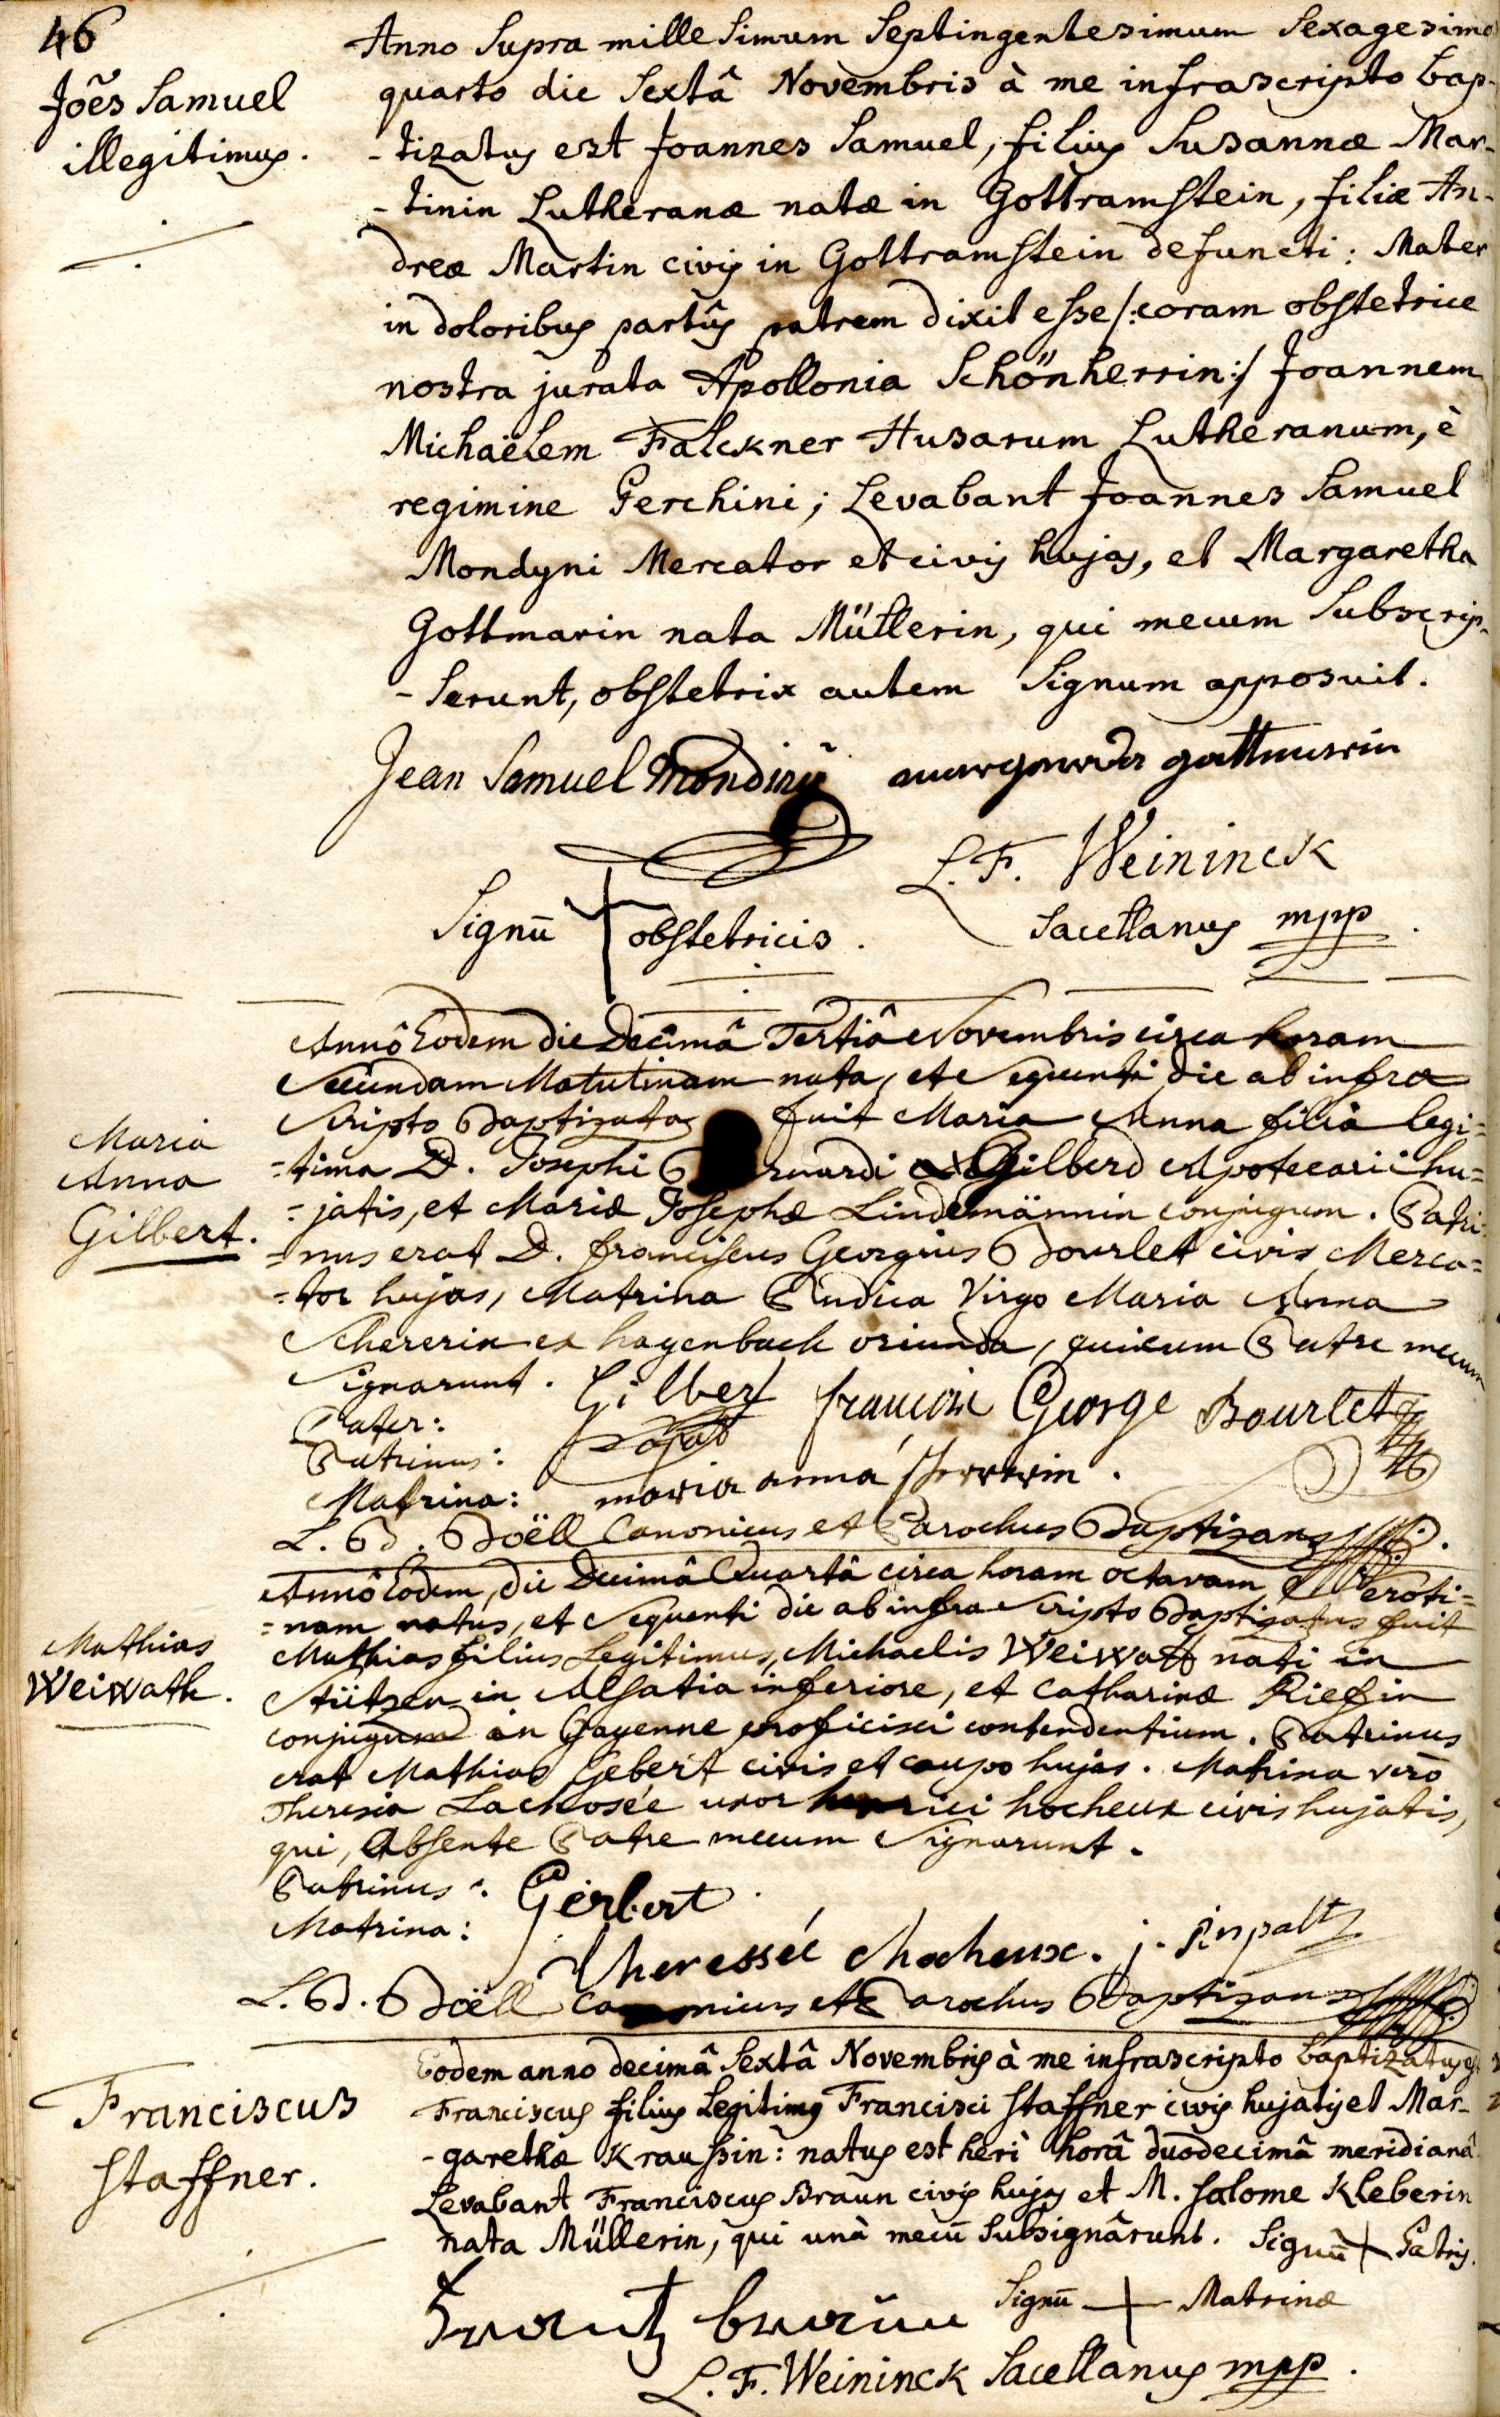 46
Joẽs Samuel
illegitimus.
Anno Supra millesimum Septingentesimum Sexagesimo
quarto die Sextâ Novembris à me infrascripto bap-
-tizatus est Joannes Samuel, filius Susannæ Mar-
-tinin Lutheranæ natæ in Gottramstein, filiæ An-
dreæ Martin civis in Gottramstein defuncti: Mater
in doloribus partûs patrem dixit esse /:coram obstetrice
nostra jurata Apollonia Schönherrin:/ Joannem
Michaëlem Falckner Husarum Lutheranum, è
regimine Gerchini; Levabant Joannes Samuel
Mondyni Mercator et civis hujas, et Margaretha
Gottmarin nata Müllerin, qui mecum Subscrip-
-serunt, obstetrix autem Signum apposuit.
Jean Samuel Mondiny
gottmarin
L. F. Weininck
Sacellanus mpp.
Signũ + obstetricis.
Maria
Anna
Gilbert.
Annô Eodem die Decimâ Tertiâ Novembris circa horam
Secundam Matutinam nata, et Sequenti die ab infra
Scripto Baptizata fuit Maria Anna filia legi=
=tima D. Josephi Gilberd Apotecarii hu=
=jatis, et Mariæ Josephæ Lindemännin conjugum. Patri=
=nus erat D. franciscus Georgius Bourlet civis Merca=
=tor hujas, Matrina Pudica Virgo Maria Anna
Schererin ex hagenbach oriunda, qui cum Patre mecum
Signarunt.
Pater: Gilbert
Patrinus: francois George Bourlet
Matrina: maria anna scherrerin.
L. B. Boëll Canonicus et Parochus Baptizans.
Mathias
Weiwath.
Annô Eodem, die Decimâ Quartâ circa horam octavam Seroti=
=nam natus, et Sequenti die ab infra Scripto Baptizatus fuit
Mathias filius Legitimus, Michaelis Weiwatt nati in
Stützen in Alsatia inferiore, et Catharinæ Riefin
conjugum in Cayenne proficisci contendentium. Patrinus
erat Mathias Gebert civis et caupo hujas. Matrina verò
Theresia Lachosée uxor henrici hocheux civis hujatis,
qui, Absente Patre mecum Signarunt.
Patrinus: Gerbert
Matrina: theressée hocheux.
L. B. Boëll Canonicus et Parochus Baptizans
Franciscus
Staffner.
Eodem anno decimâ Sextâ Novembris à me infrascripto baptizatus est
Franciscus filius Legitimus Francisci Staffner civis hujatis et Mar-
-garethæ Kraussin: natus est heri horâ duodecimâ meridianâ
Levabant Franciscus Braun civis hujas et M. Salome Kleberin
nata Müllerin, qui unà mecũ Subsignârunt. Signũ + Patris.
Frantz braun Signũ + Matrinæ
L. F. Weininck Sacellanus mpp.